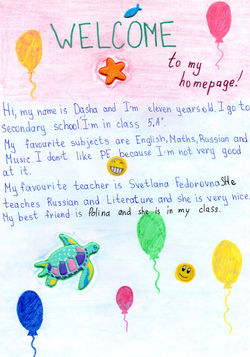 WELCOME
to my
homepage!
Hi, my name is Dasha and I'm eleven years old. I go to
secondary school. I'm in class 5"A".
My favourite subjects are English, Maths, Russian and
Music. I don't like PE because I'm not very good
at it.
My favourite teacher is Svetlana Fedorovna. She
teaches Russian and Literature and she is very nice.
My best friend is Polina and she is in my class.